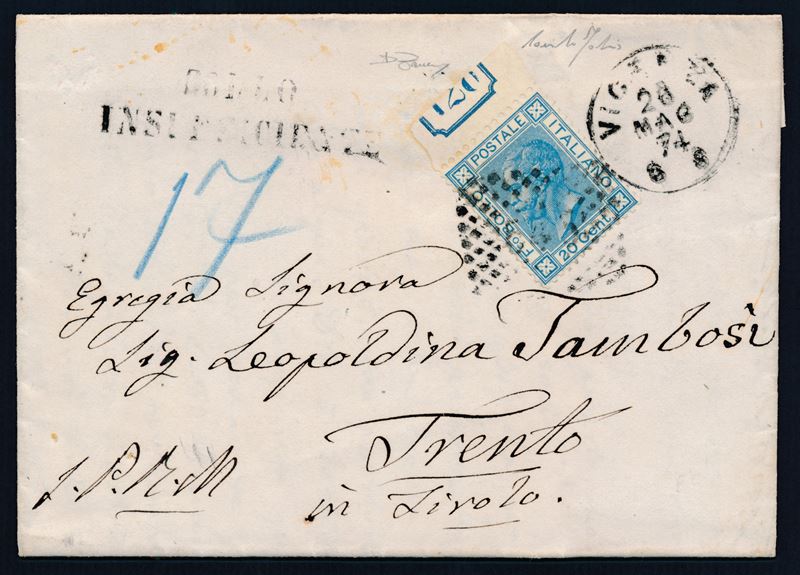 BOLLO
INSUFFICIENTE
17
120
POSTALE ITALIANO
Fco Bollo
20 Cent
VICENZA
28
MAG
74
Egregia Signora
Sig. Leopoldina Tambosi
Trento
in Tirolo.